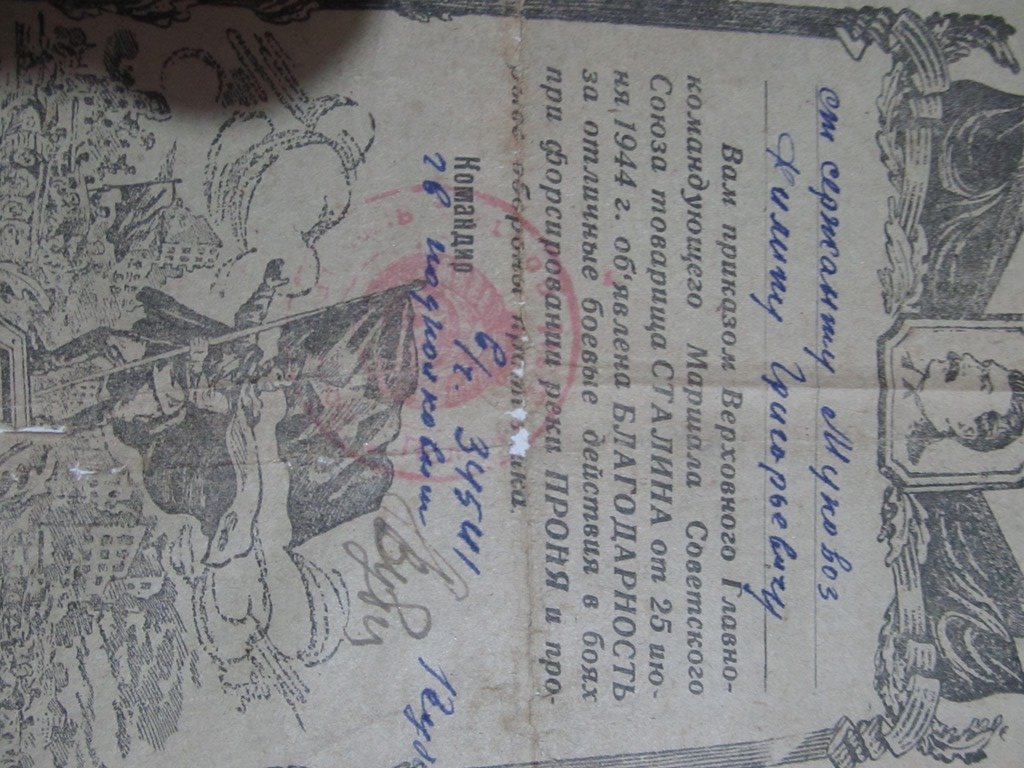 ст сержанту Муковоз
Филипу Григорьевичу
Вам приказом Верховного Главно-
командующего Маршала Советского
Союза товарища СТАЛИНА от 25 ию-
ня 1944 г. об'явлена БЛАГОДАРНОСТЬ
за отличные боевые действия в боях
при форсировании реки ПРОНЯ и про-
обороны
Командир в/ч. 34541
гв подполковник